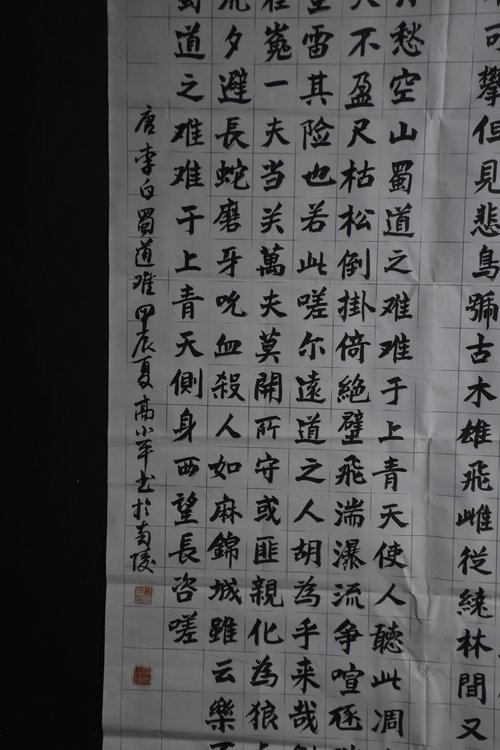 可攀但見悲鳥號古木雄飛雌從繞林間又
愁空山蜀道之难难于上青天使人聽此凋
不盈尺枯松倒掛倚絶壁飛湍瀑流争喧豗
雷其险也若此嗟尔遠道之人胡為乎来哉
嵬一夫当关萬夫莫開所守或匪親化為狼
夕避長蛇磨牙吮血殺人如麻錦城雖云樂
蜀道之难难于上青天側身西望長咨嗟
唐李白蜀道难甲辰夏高小平书於南陵